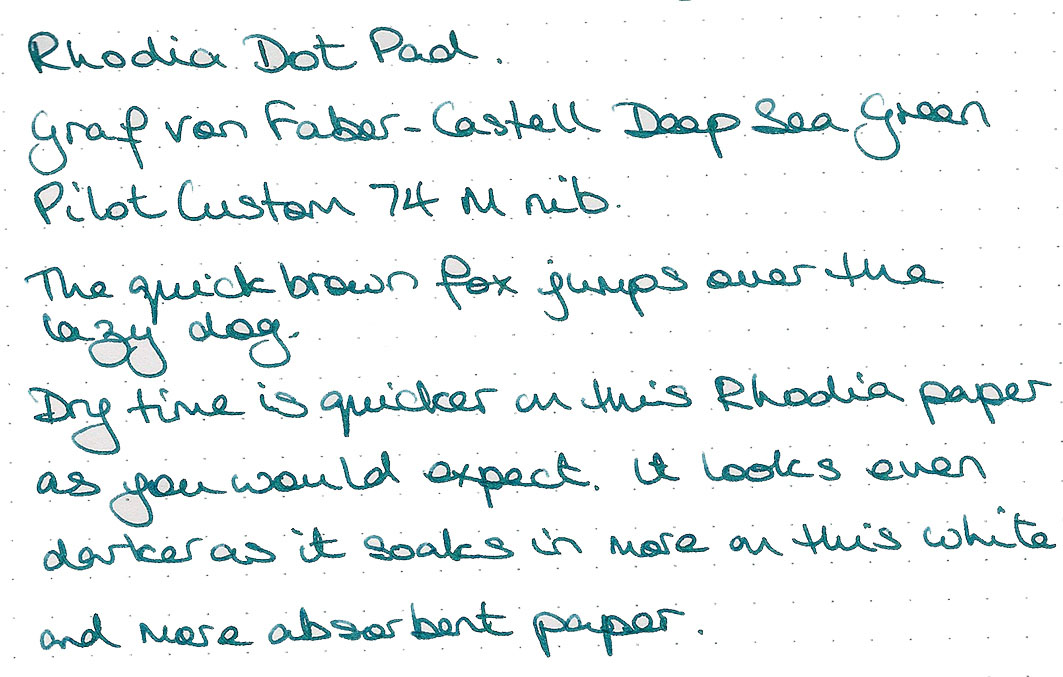 Rhodia Dot Pad.
Graf von Faber-Castell Deep Sea Green
Pilot Custom 74 M nib.
The quick brown fox jumps over the
lazy dog.
Dry time is quicker on this Rhodia paper
as you would expect. It looks even
darker as it soaks in more on this white
and more absorbent paper.